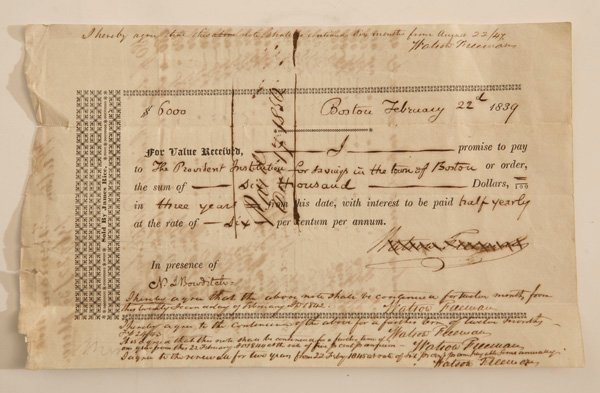 I hereby agree that the above note shall be continued six months from August 22/47
Watson Freeman
$ 6000 Boston February 22d 1839
For Value Received, I promise to pay
to The Provident Institution for Savings in the town of Boston or order,
the sum of Six thousand Dollars, /100
in three years from this date, with interest to be paid half yearly
at the rate of six per centum per annum.
In presence of
N. I. Bowditch
Sold By James Rice,
I hereby agree that the above note shall be continued for twelve months from
this twenty second day of February 1842.
Watson Freeman
I hereby agree to the continuance of the above for a further term of twelve months
Watson Freeman
It is agreed that this note shall be continued for a further term of
one year from this 22 February 1844 at the rate of five pr cent pr annum
Watson Freeman
I agree to the renewal for two years from 22 Feby 1845 at rate of six pr cent pr annum payable semi annually
Watson Freeman